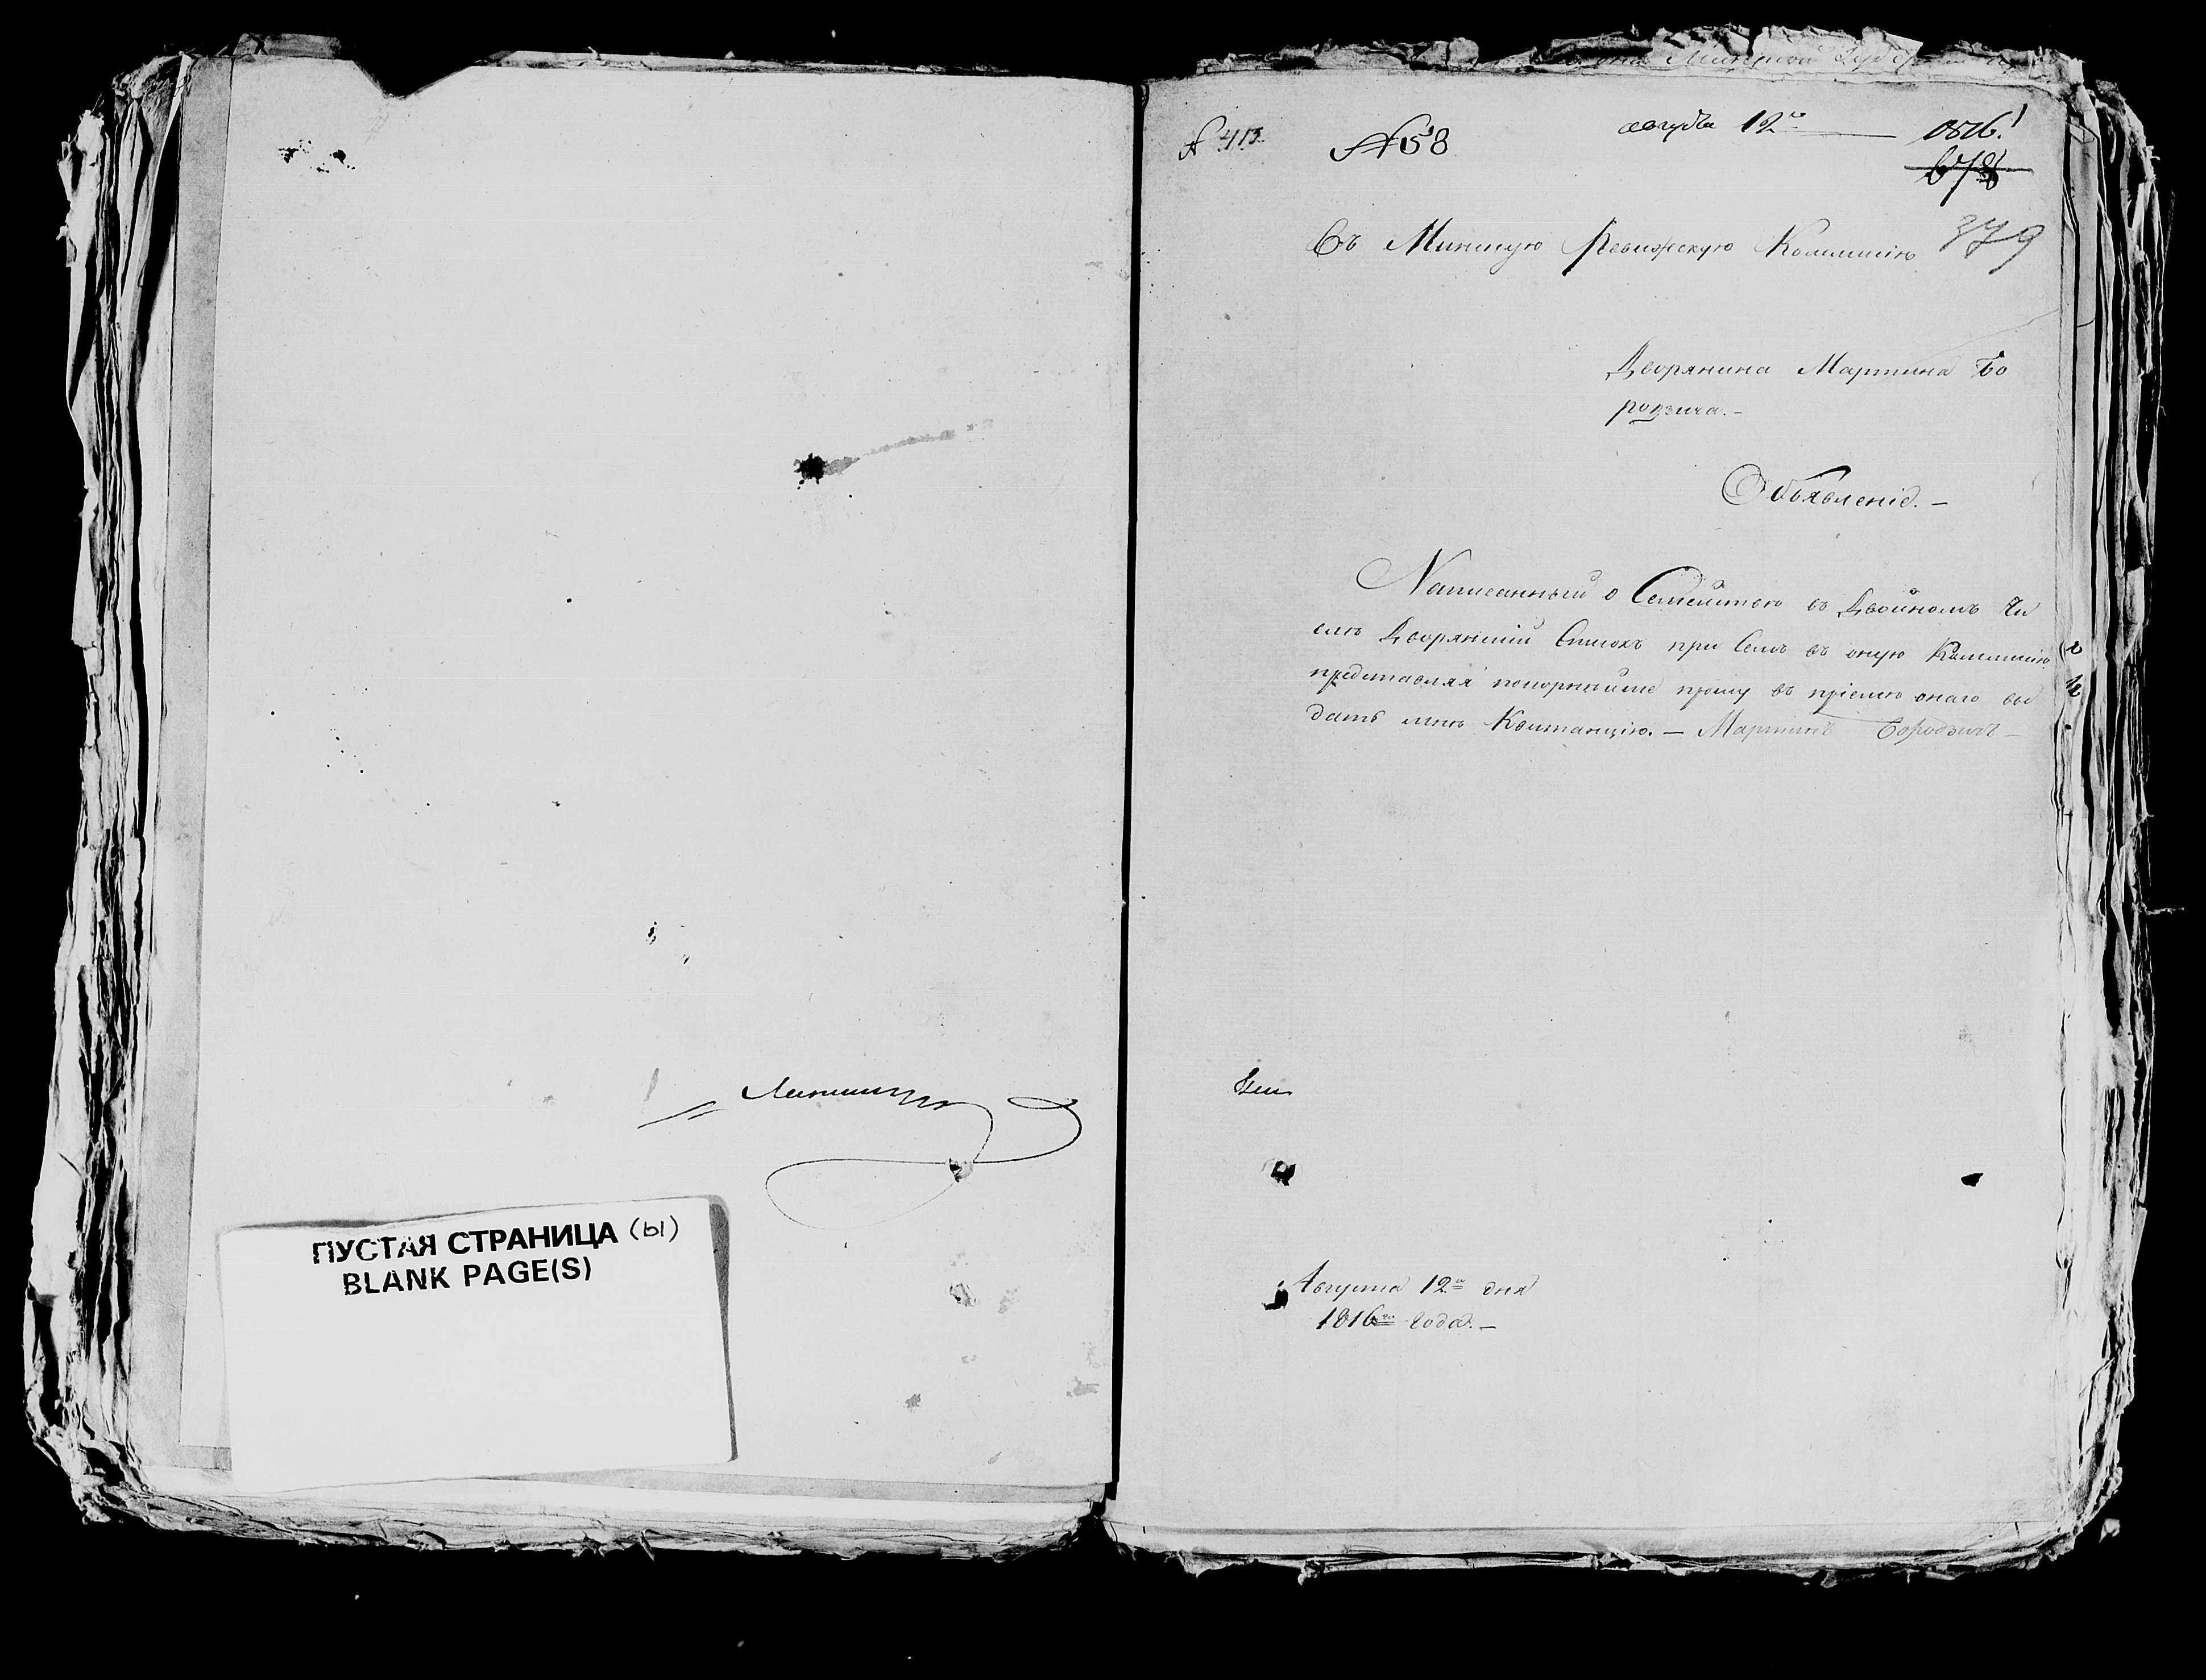 ПУСТАЯ СТРАНИЦА (ы)
BLANK PAGE(S)
№ 413
№ 58
августа 12го
379
Въ Минскую Ревижскую Коммисiю
Дворянина Мартина Бо
родзича. —
Объявленiе. —
Написанный о Семействѣ въ Двойномъ Чи
слѣ Дворянскiй Списокъ при Семъ въ оную Коммисiю
представляя покорнейше прошу въ прiемѣ онаго вы
дать мнѣ Квитанцiю. — Мартинъ Бородзичъ —
Августа 12го дня
1816го года. —